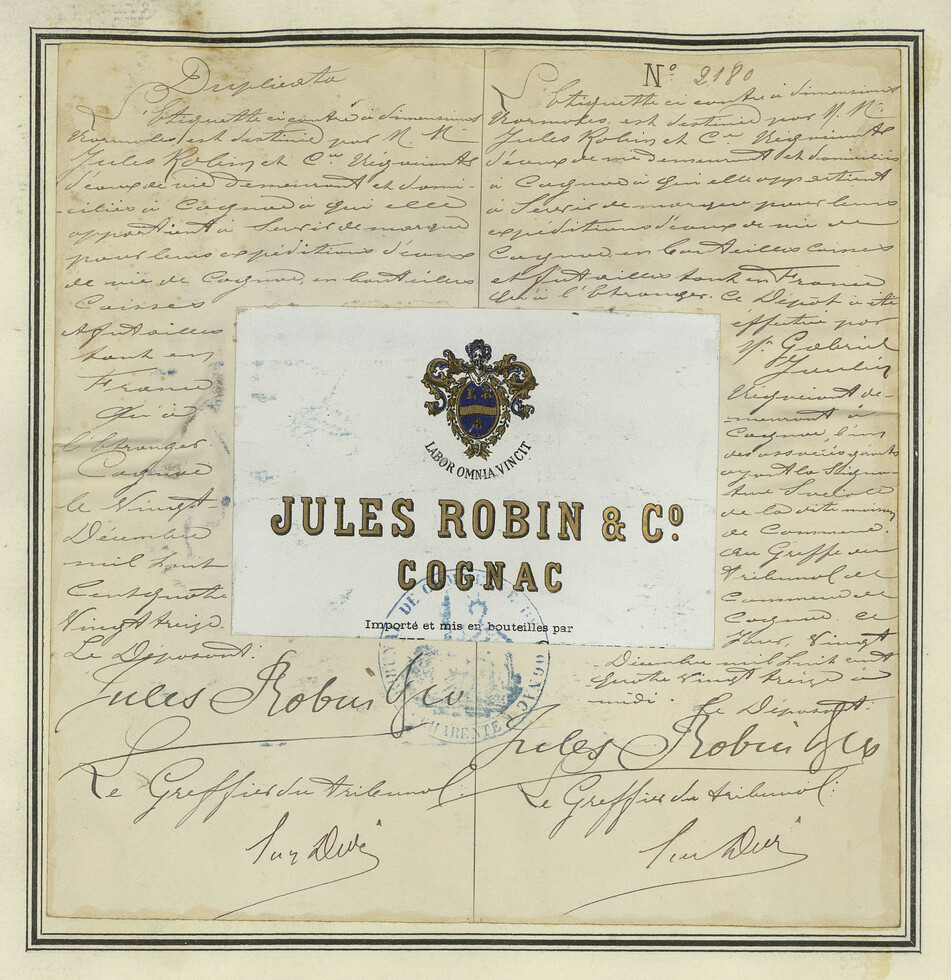 Duplicata
L'étiquette ci contre à dimensions
variables, est destinée par M. M.
Jules Robin et Cie Négociants
d'eaux de vie demeurant et domi-
-ciliés à Cognac à qui elle
appartient à Servir de marque
pour leurs expéditions d'eaux
de vie de Cognac, en bouteilles
Caisses
et futailles
tant en
France
qu'à
l'étranger
Cognac
le Vingt
Décembre
mil huit
Cent quatre
Vingt treize.
Le Déposant:
Jules Robin & Cie
Le Greffier du tribunal:
N° 2180
L'étiquette ci contre à dimensions
variables, est destinée par M. M.
Jules Robin et Cie Négociants
d'eaux de vie demeurant et domiciliés
à Cognac à qui elle appartient
à Servir de marque pour leurs
expéditions d'eaux de vie de
Cognac, en bouteilles caisses
et futailles tant en France
qu'à l'étranger. Ce Dépôt a été
effectué par
Mr. Gabriel
Négociant de-
meurant à
Cognac, l'un
des associés gérants
ayant la Signa-
ture Sociale
de la dite maison
de Commerce
au Greffe du
Tribunal de
Commerce de
Cognac ce
Jour, Vingt
Décembre mil huit cent
quatre Vingt treize à
midi. Le Déposant:
Jules Robin & Cie
Le Greffier du tribunal:
LABOR OMNIA VINCIT
JULES ROBIN & Co.
COGNAC
Importé et mis en bouteilles par
TRIBUNAL DE COMMERCE DE COGNAC
CHARENTE